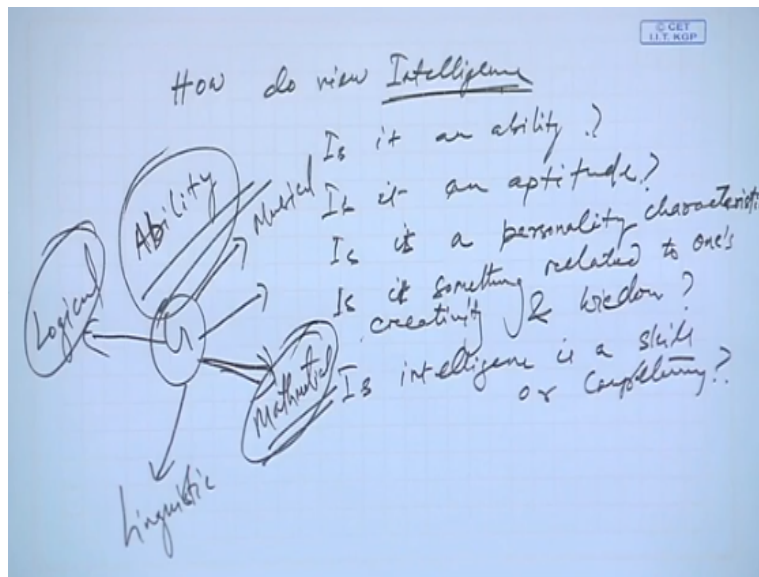 © CET
I.I.T. KGP
How do view Intelligence
Is it an ability?
Is it an aptitude?
Is it a personality characteristic
Is it something related to one's
creativity & wisdom?
Is intelligence is a skill
or
Ability
Musical
Logical
Mathmatical
Linguistic